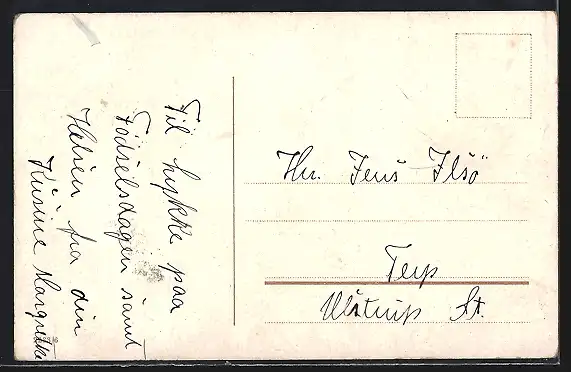 Til Lykke paa
Fødselsdagen samt
Helsen fra din
Kusine Margrethe
Hr. Jens Ilsö
Terp
Ulstrup St.